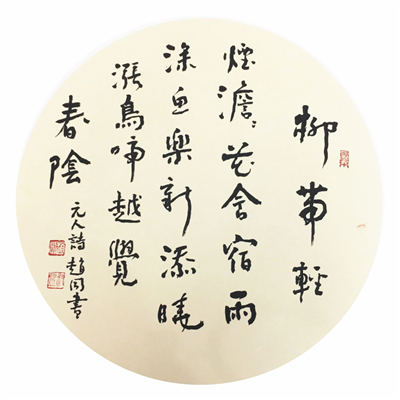 柳帶輕
煙澹〻花含宿雨
深魚樂新添曉
漲鳥啼越覺
春陰
元人詩趙同書